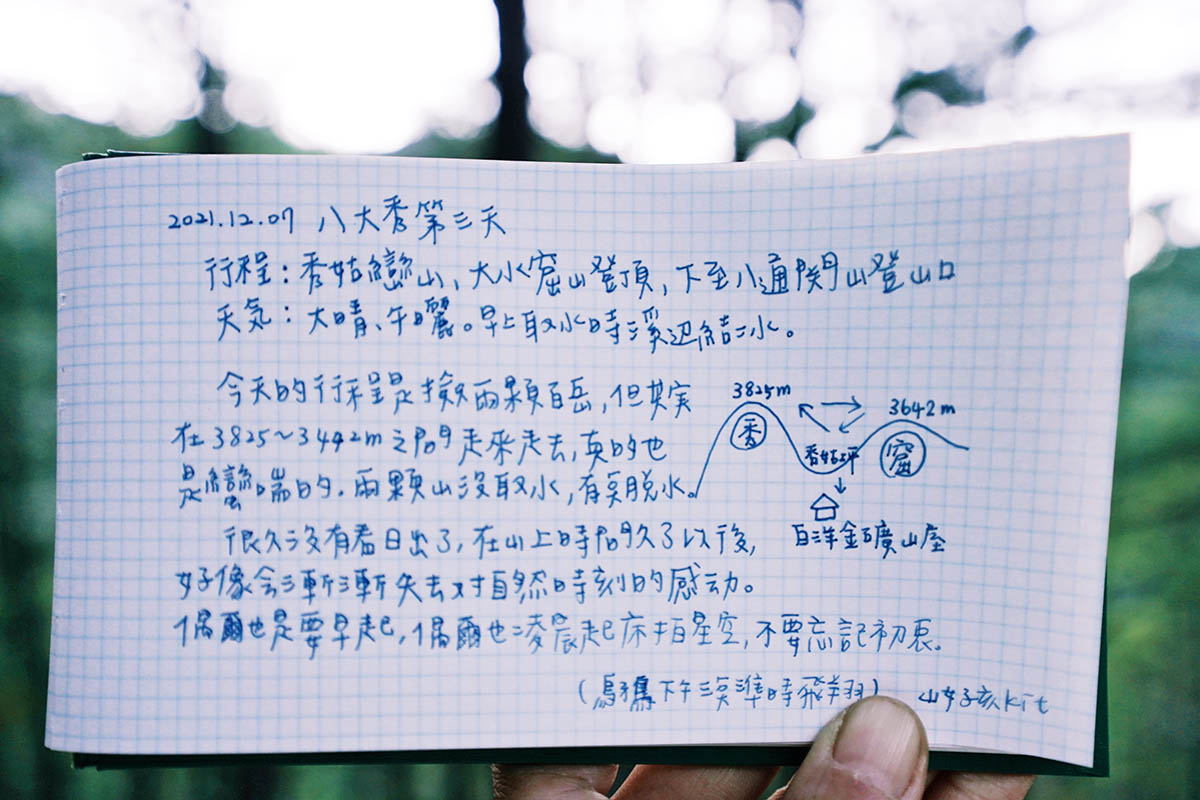 2021.12.07 八大秀第三天
行程：秀姑巒山、大水窟山登頂，下至八通関山登山口
天気：大晴、午曬。早上取水時溪辺結冰。
今天的行程是撿兩顆百岳，但其实
在3825～3442m之間走來走去，真的也
是蠻喘的．兩顆山沒取水，有夠脫水。
很久沒有看日出了，在山上時間久了以後，
好像会漸漸失去对自然時刻的感动。
偶爾也是要早起，偶爾也凌晨起床拍星空，不要忘記初衷。
（烏鴉下午三点準時飛翔） 山女孩kit
3825m
3642m
秀
秀姑坪
窟
白洋金礦山屋